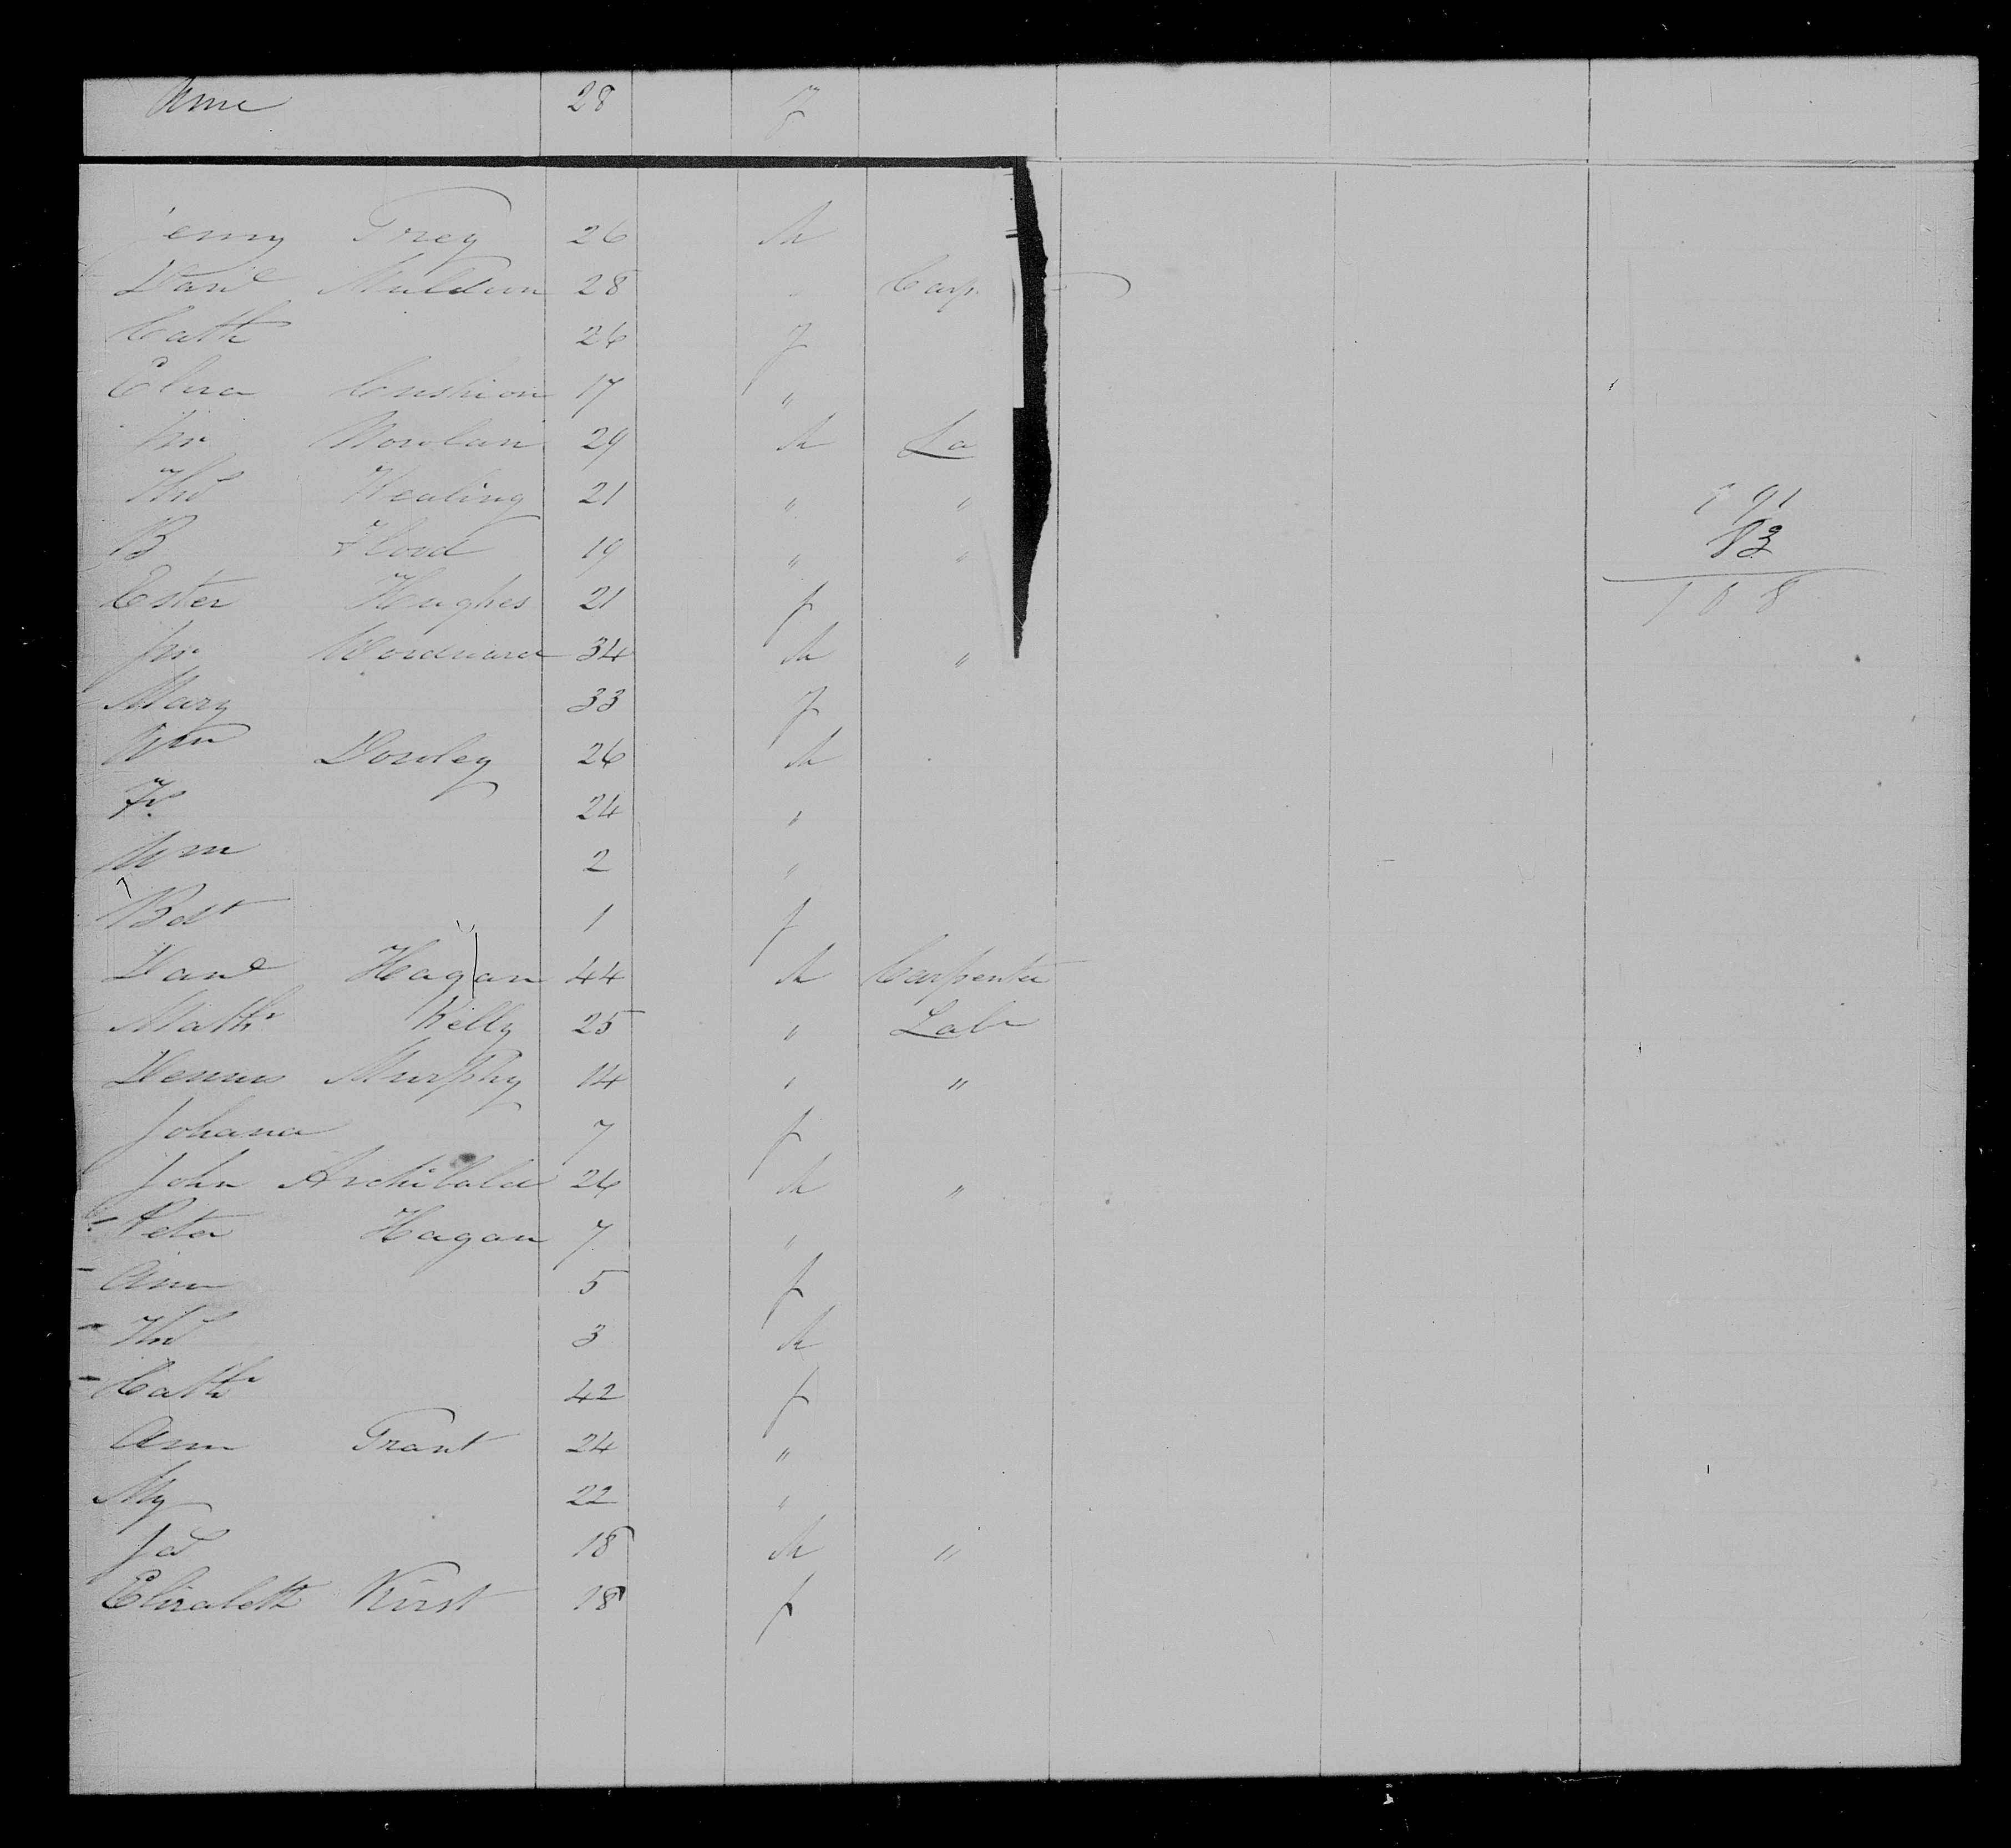 Ann 28 f
Trey 26 M
Danl Muldoon 28 " Carp
Cath 26 f
Eliza Cushion 17 "
Jno Nowlan 29 M La
Thos Healing 21 " "
B Flood 19 " "
Ester Hughes 21 f
Jno Woodward 34 M "
Mary 33 f
Wm Dowley 26 M
24 "
Wm 2 "
Bdt 1 f
Danl Hagan 44 M Carpenter
Mathw Kelly 25 " Labr
Dennis Murphy 14 " "
Johana 7 f
John Archibald 26 M "
Peter Hagan 7 "
Ann 5 f
Thos 3 M
Cathr 42 f
Ann Trant 24 "
My 22 "
Jas 18 M "
Elizabeth Kirst 18 f